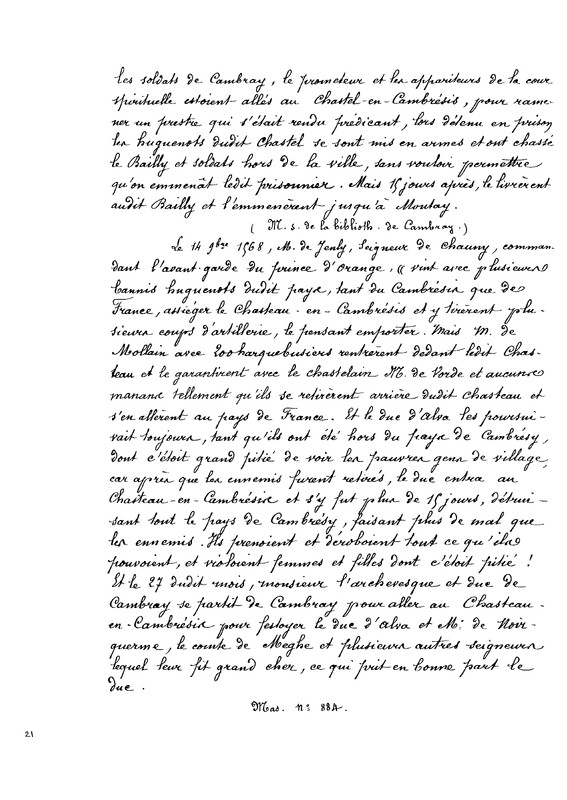 les soldats de Cambray, le promoteur et les appariteurs de la cour
spirituelle estoient allés au Chastel-en-Cambrésis, pour rame-
ner un prestre qui s'était rendu prédicant, lors détenu en prison
les huguenots dudit Chastel se sont mis en armes et ont chassé
le Bailly et soldats hors de la ville, sans vouloir permettre
qu'on emmenât ledit prisonnier. Mais 15 jours après, le livrèrent
audit Bailly et l'emmenèrent jusqu'à Montay.
( M. s. de la biblioth. de Cambray.)
Le 14 9bre 1568, M. de Jenly, Seigneur de Chauny, comman-
dant l'avant-garde du prince d'Orange, (( vint avec plusieurs
bannis huguenots dudit pays, tant du Cambrésis que de
France, assiéger le Chasteau-en-Cambrésis et y tirèrent plu-
sieurs coups d'artillerie, le pensant emporter. Mais M. de
Mollain avec 200 harquebusiers rentrèrent dedant ledit Chas-
teau et le garantirent avec le chastelain M. de Vorde et aucuns
manans tellement qu'ils se retirèrent arrière dudit chasteau et
s'en allèrent au pays de France. Et le duc d'Alva les poursui-
vait toujours, tant qu'ils ont été hors du pays de Cambrésy,
dont c'étoit grand pitié de voir les pauvres gens de village,
car après que les ennemis furent retirés, le duc entra au
Chasteau-en-Cambrésis et s'y fut plus de 15 jours, détrui-
sant tout le pays de Cambrésy, faisant plus de mal que
les ennemis. Ils prenoient et déroboient tout ce qu'ils
pouvoient, et violoient femmes et filles dont c'étoit pitié !
Et le 27 dudit mois, monsieur l'archevesque et duc de
Cambray se partit de Cambray pour aller au Chasteau-
en-Cambrésis pour festoyer le duc d'Alva et Mr de Noir-
querme, le comte de Meghe et plusieurs autres seigneurs
lequel leur fit grand cher, ce qui prit en bonne part le
duc.
Mas. n° 884.
21